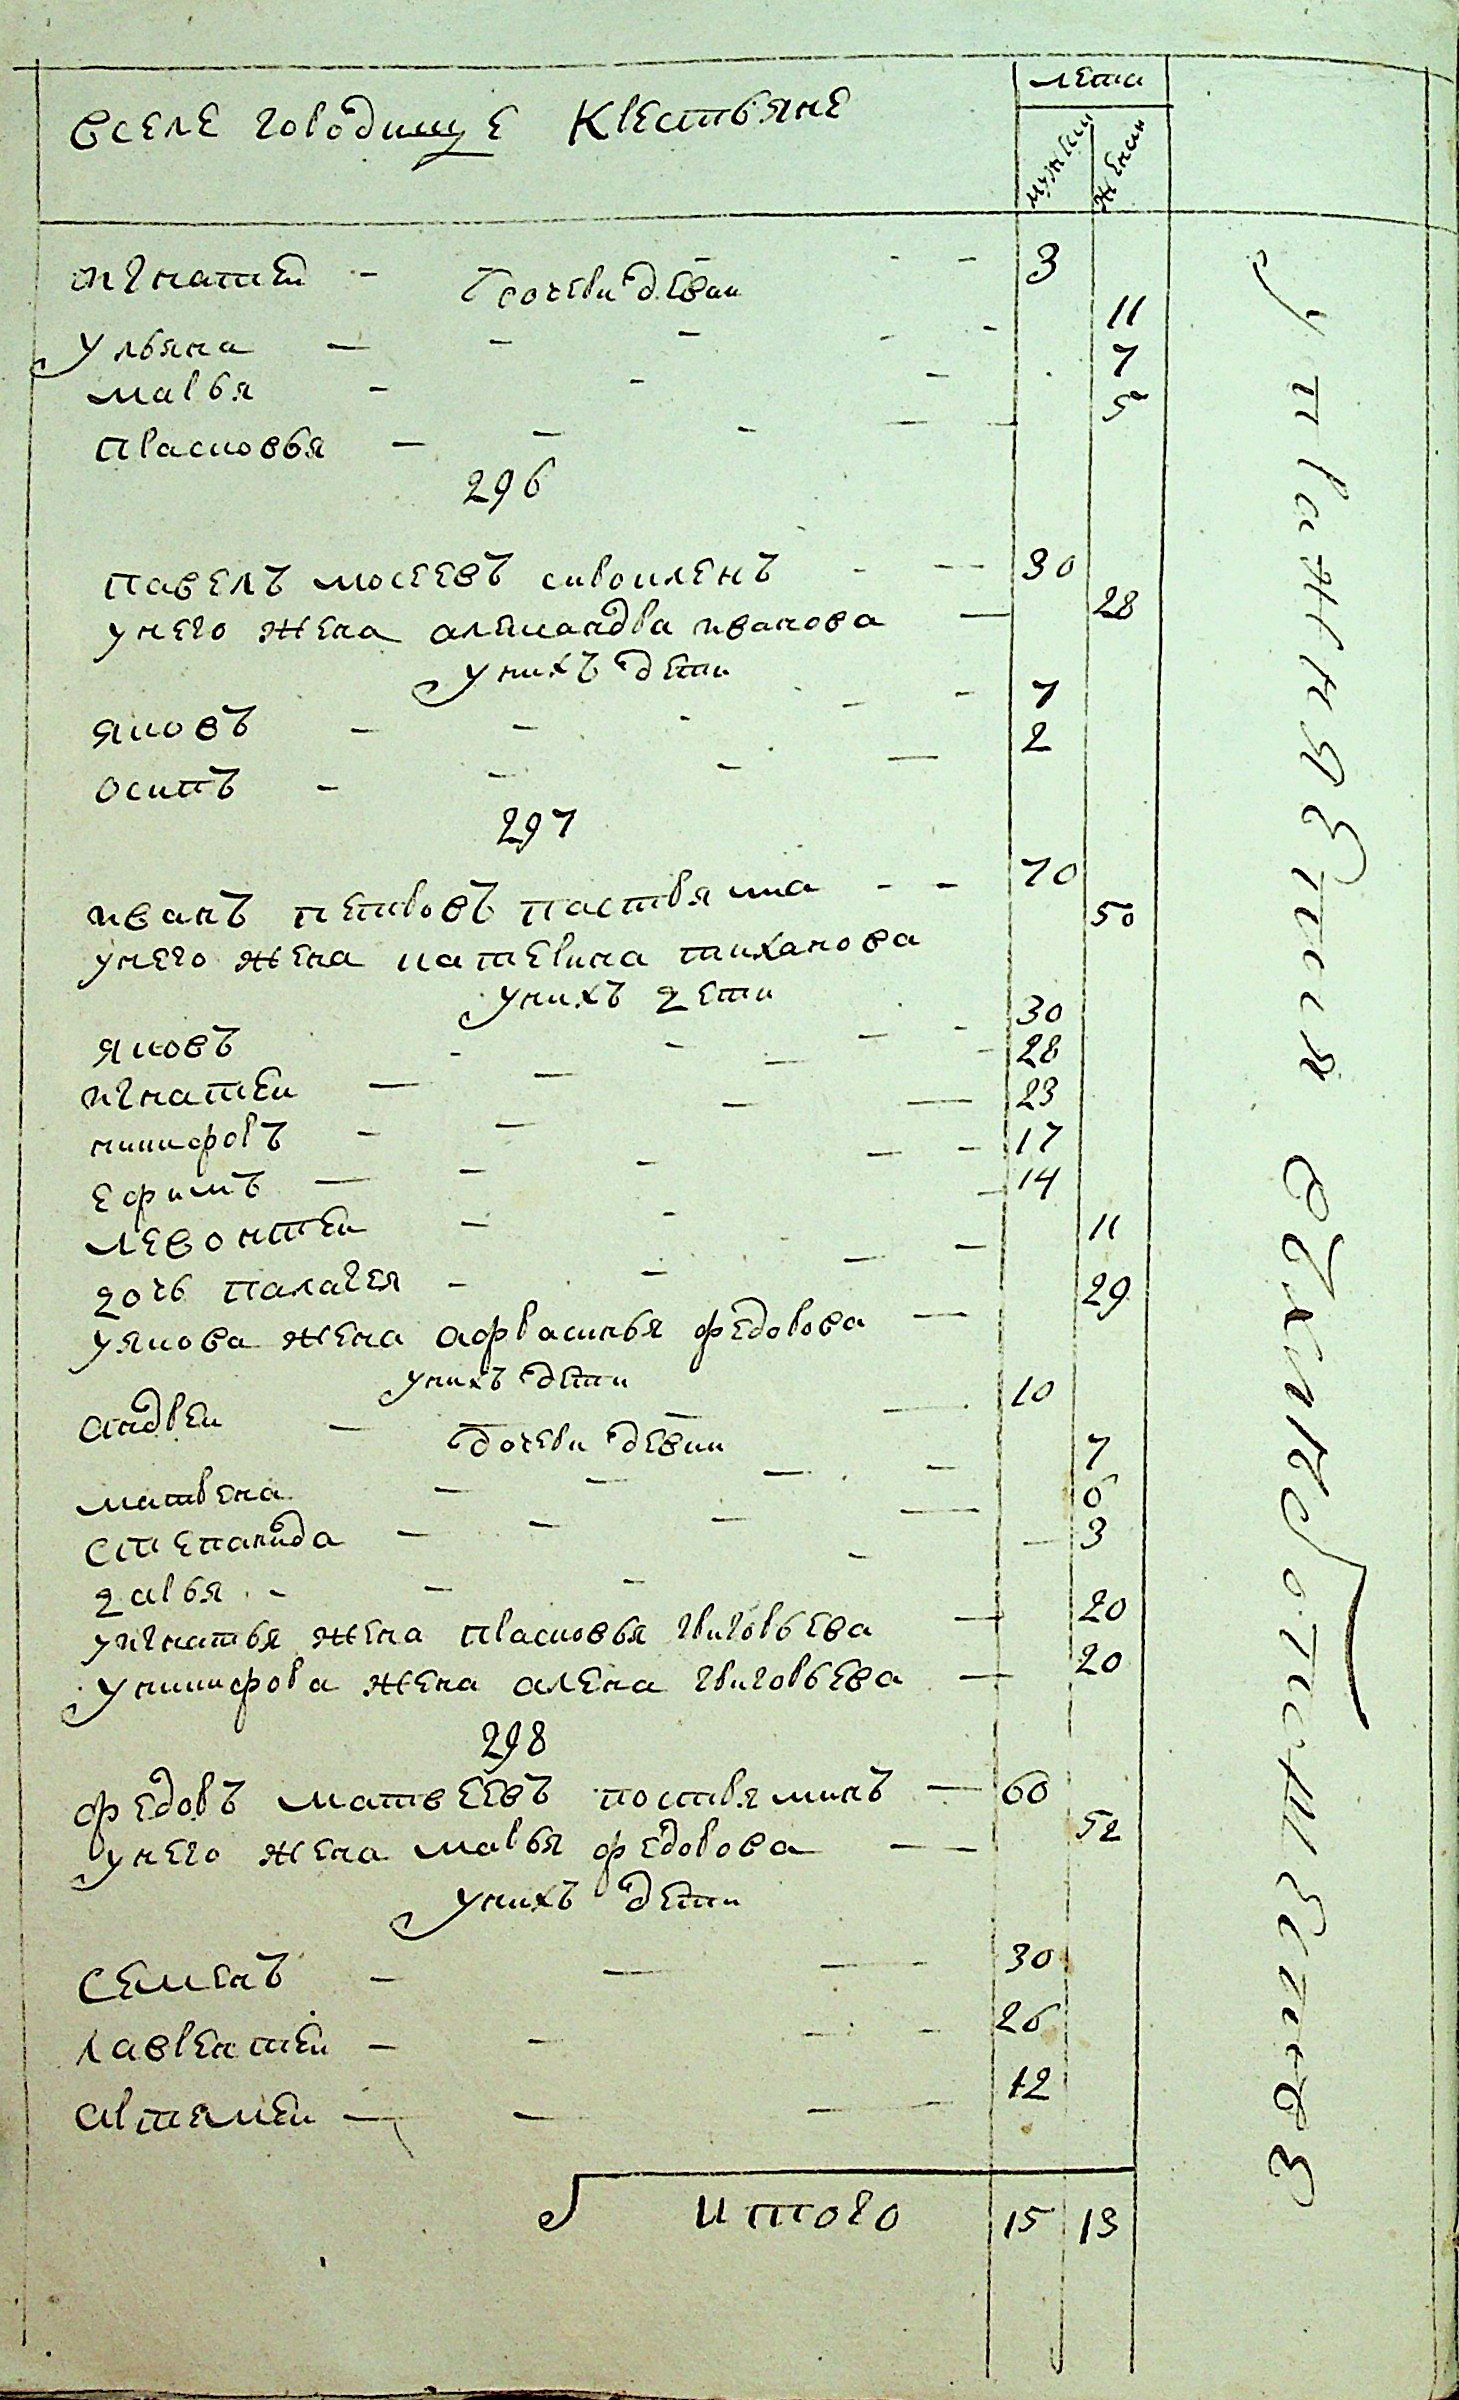 вселе городище крестьяне
лета
мужеск
женск
игнатеи 3
дочери девки
ульяна 11
марья 7
прасковья 5
296
павелъ мосеевъ 30
унего жена александра иванова 28
унихъ дети
яковъ 7
осипъ 2
297
иванъ петровъ 70
унего жена катерина тиханова 50
унихъ дети
яковъ 30
игнатеи 28
никифоръ 23
ефимъ 17
левонтеи 14
дочь палагея 11
уякова жена афрасинья федорова 29
унихъ дети
андреи 10
дочери девки
матрена 7
степанида 6
дарья 3
уигнатья жена прасковья григорьева 20
уникифора жена алена григорьева 20
298
федоръ матвеевъ 60
унего жена марья федорова 52
унихъ дети
семенъ 30
лаврентеи 26
артемеи 12
итого 15 13